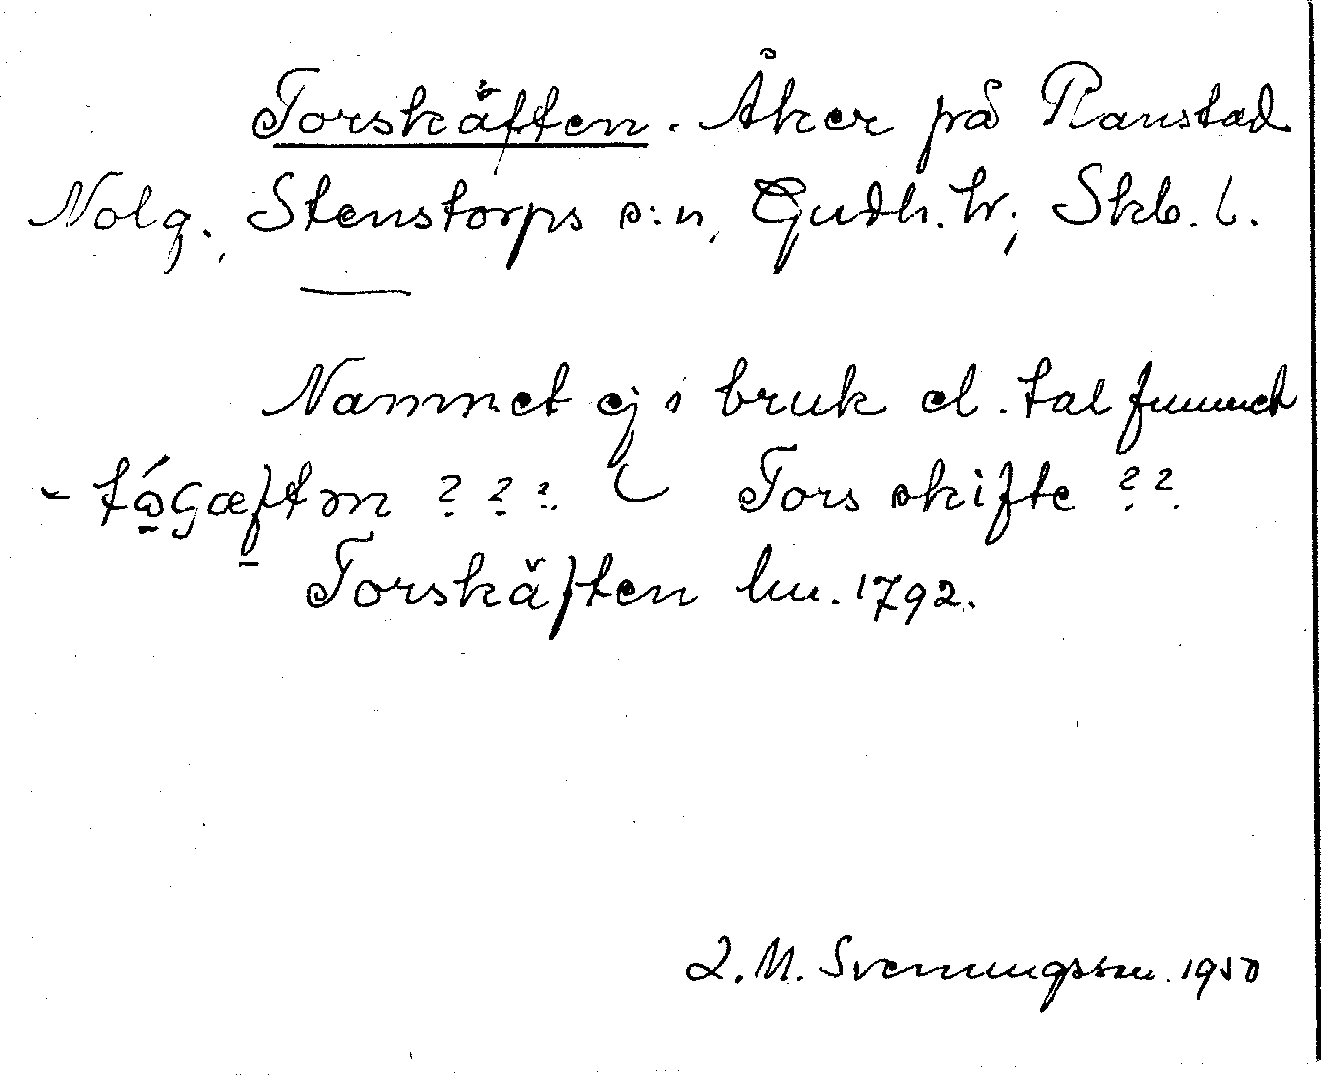 Torskäften. Åker på Ranstad
Nolg., Stenstorps s:n, Gudh. hr; Skb. l.
Namnet ej i bruk el. tal funnet
- tɷ́ꞔæftən ? ? ? Tors skifte ? ?
Torskäften lm. 1792.
L. M. Svenungsson. 1950